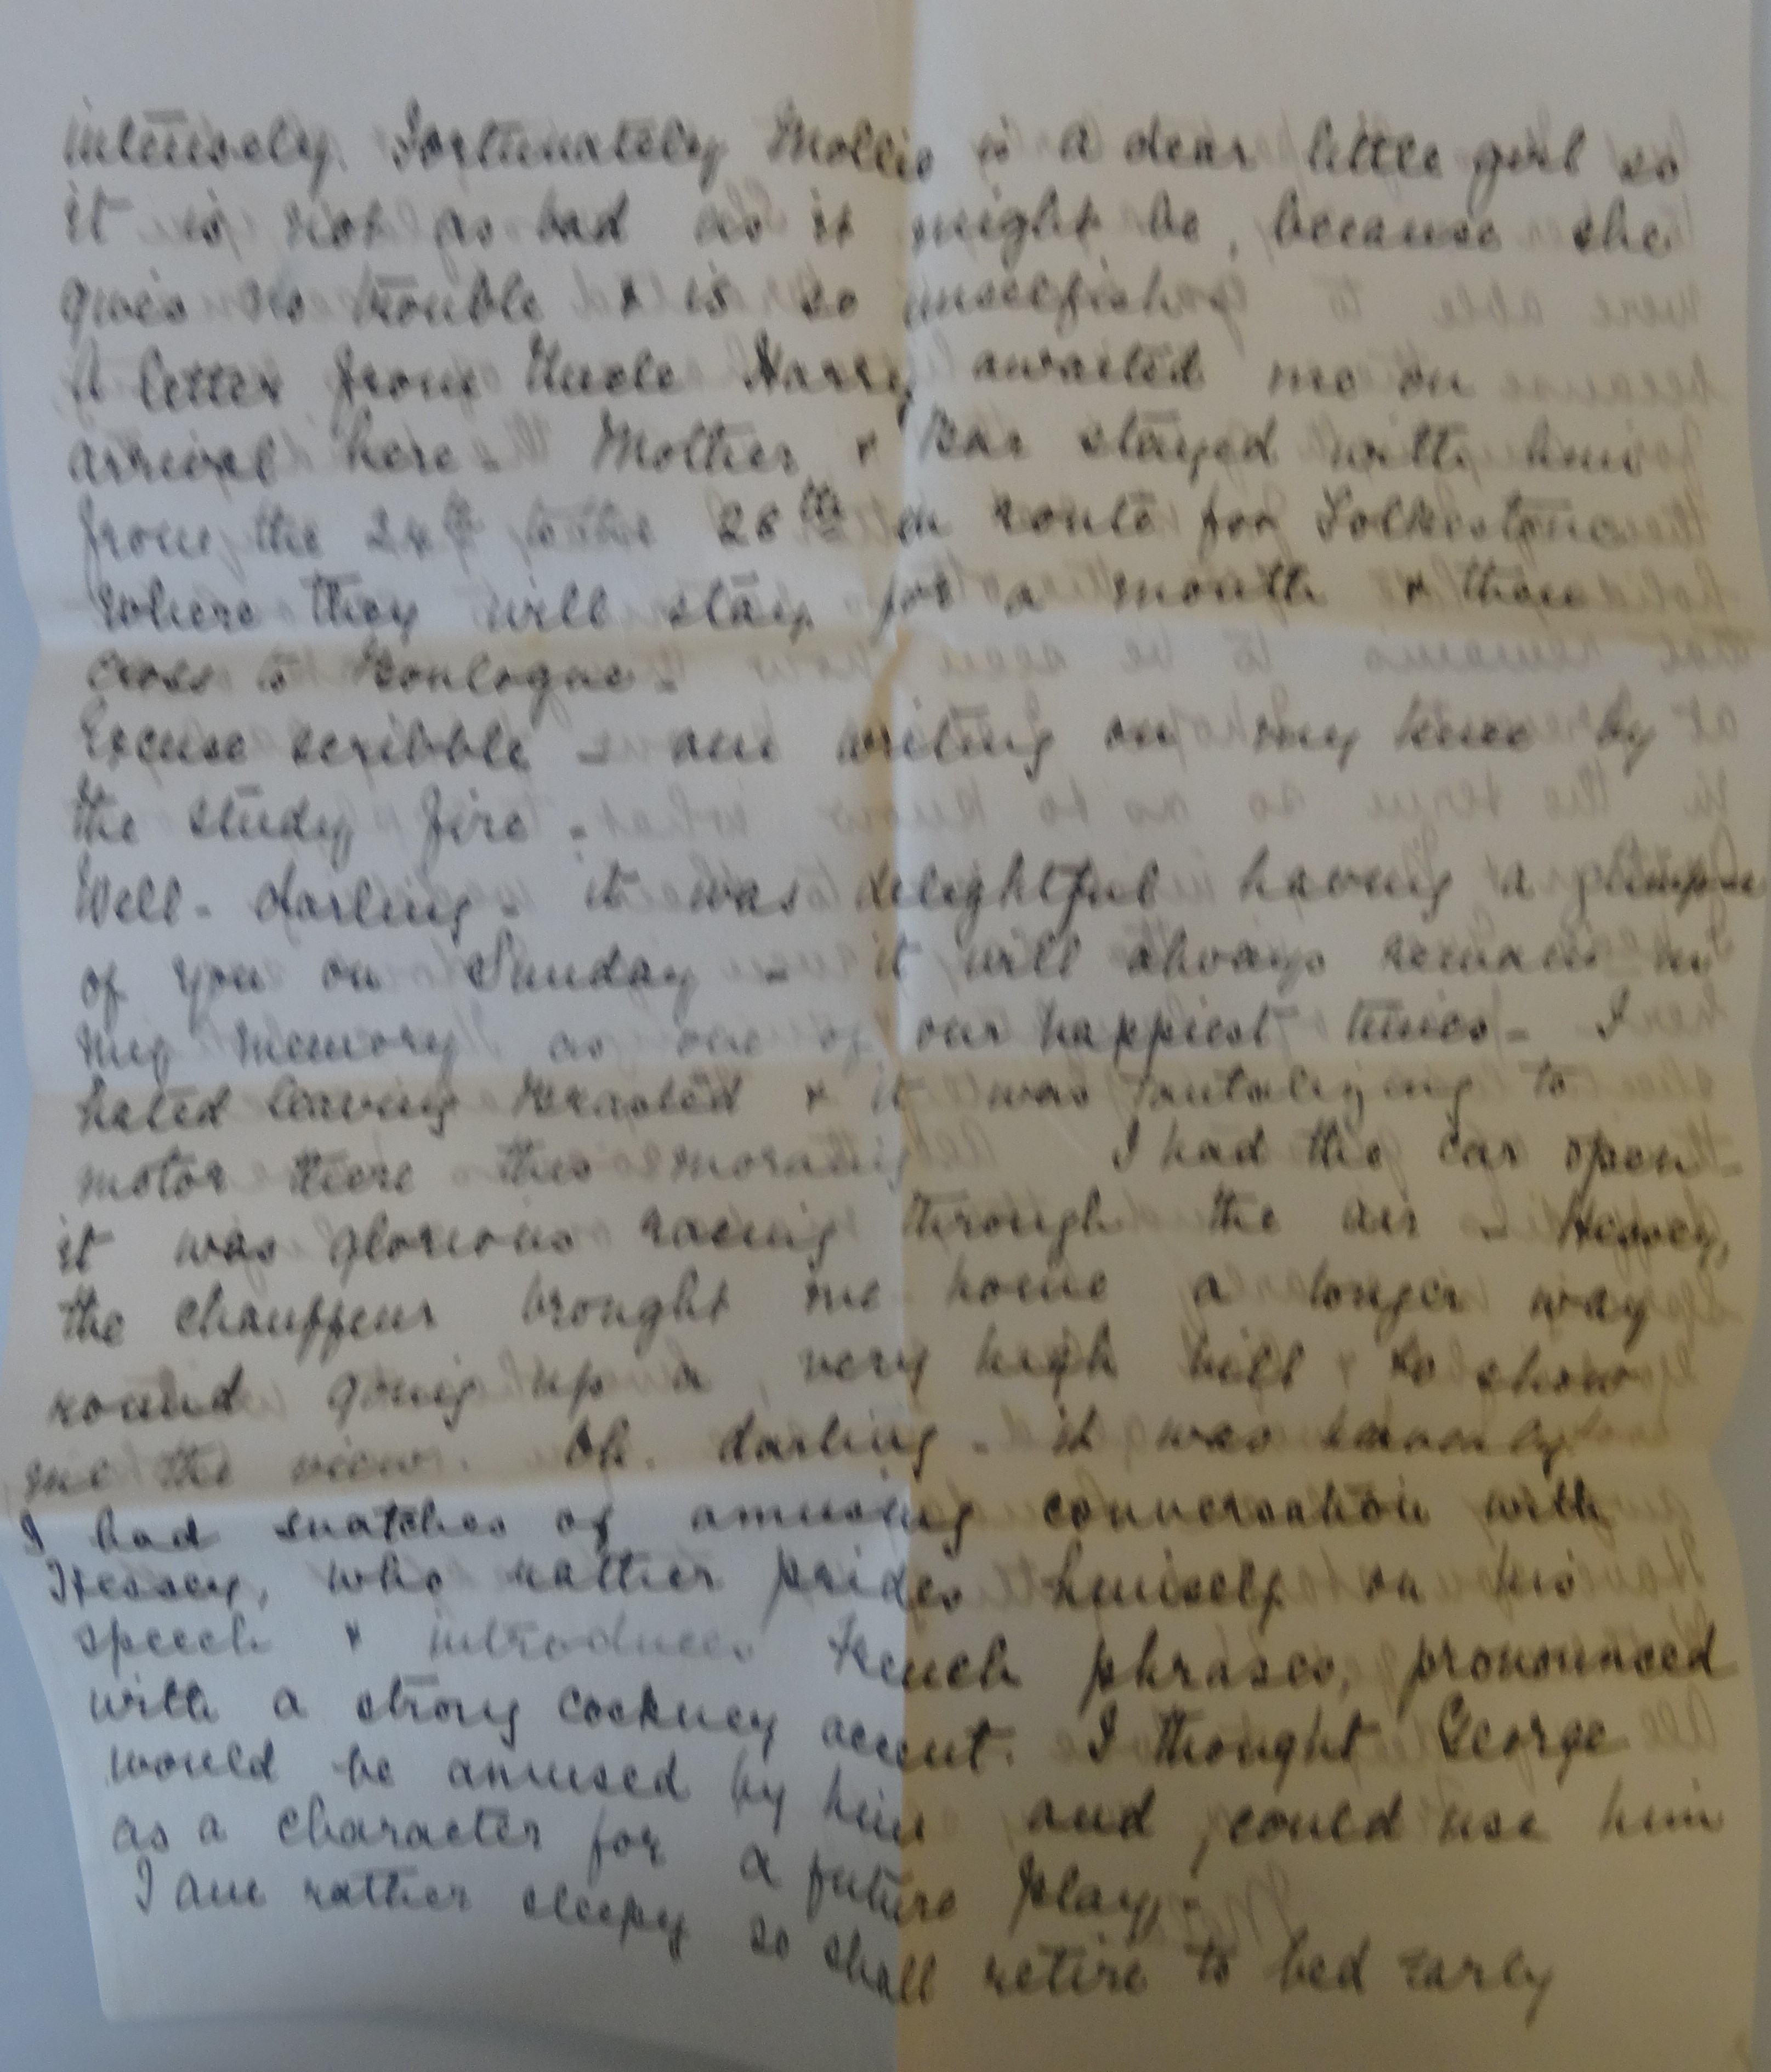 intensely. Fortunately Mollie is a dear little girl so
it is not as bad as it might be, because she
gives no trouble & is so unselfish.
A letter from Uncle Harry awaited me on
arrival here - Mother & Bar stayed with him
from the 24th to the 26th en route for Folkestone
where they will stay for a month & then
cross to Boulogne -
Excuse scribble - am writing on my knee by
the study fire -
Well - darling - it was delightful having a glimpse
of you on Sunday - it will always remain in
my memory as one of our happiest times - I
hated leaving Brasted & it was tantalizing to
motor there this morning I had the car open -
it was glorious racing through the air - Hessey,
the chauffeur brought me home a longer way
round going up a very high hill & to show
me the view. Oh. darling - it was heavenly
I had snatches of amusing conversation with
Hessey, who rather prides himself on his
speech & introduces French phrases, pronounced
with a strong cockney accent. I thought George
would be amused by him and could use him
as a character for a future play -
I am rather sleepy so shall retire to bed early